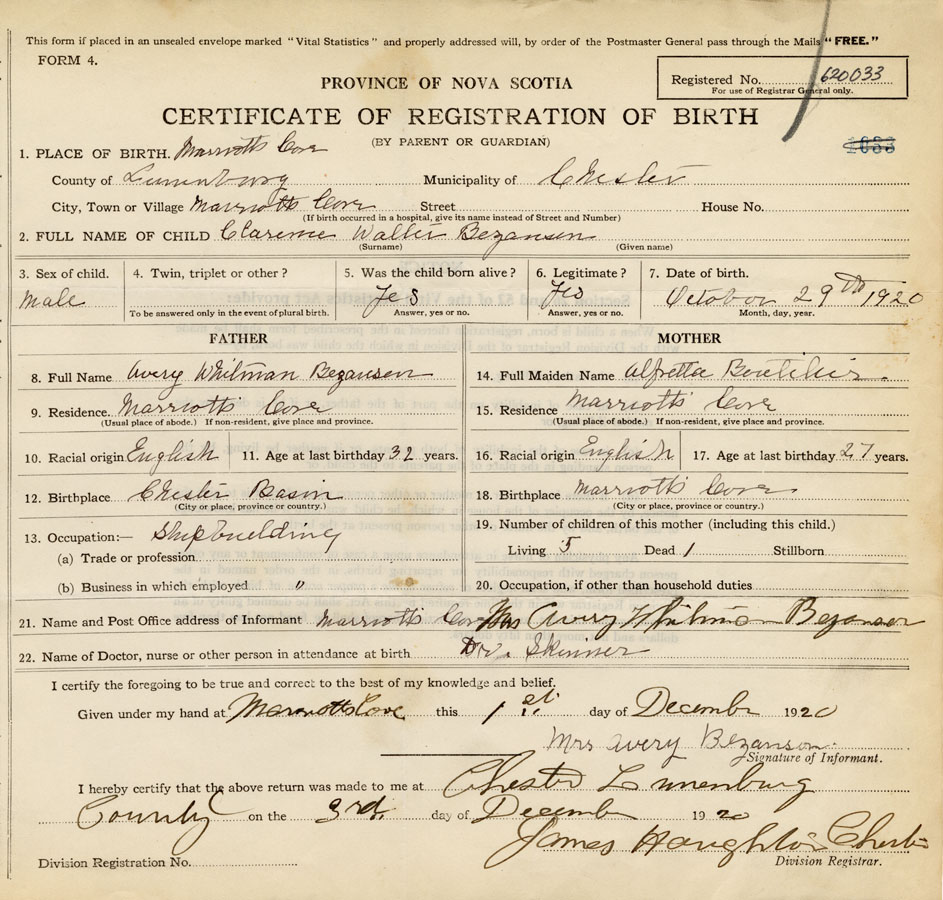 This form if placed in an unsealed envelope marked "Vital Statistics" and properly addressed will, by order of the Postmaster General pass through the Mails "FREE."
FORM 4.
Registered No. 620033
For use of Registrar General only.
PROVINCE OF NOVA SCOTIA
CERTIFICATE OF REGISTRATION OF BIRTH
(BY PARENT OR GUARDIAN)
1. PLACE OF BIRTH. Marriotts Cove
County of Lunenburg Municipality of Chester
City, Town or Village Marriotts Cove Street House No.
(If birth occurred in a hospital, give its name instead of Street and Number)
2. FULL NAME OF CHILD Clarence Walter Bezanson
(Surname) (Given name)
3. Sex of child. 4. Twin, triplet or other? 5. Was the child born alive? 6. Legitimate? 7. Date of birth.
Male Yes Yes October 29th 1920
To be answered only in the event of plural birth. Answer, yes or no. Answer, yes or no. Month, day, year.
FATHER
8. Full Name Avery Whitman Bezanson
9. Residence. Marriotts Cove
(Usual place of abode.) If non-resident, give place and province.
10. Racial origin English 11. Age at last birthday 32 years.
12. Birthplace Chester Basin
(City or place, province or country.)
13. Occupation:— Shipbuilding
(a) Trade or profession
(b) Business in which employed "
MOTHER
14. Full Maiden Name Alfretta Boutilier.
15. Residence Marriotts Cove
(Usual place of abode.) If non-resident, give place and province.
16. Racial origin English 17. Age at last birthday 27 years.
18. Birthplace Marriotts Cove
(City or place, province or country.)
19. Number of children of this mother (including this child.)
Living 5 Dead 1 Stillborn
20. Occupation, if other than household duties
21. Name and Post Office address of Informant Marriotts Cove Mrs Avery Whitman Bezanson
22. Name of Doctor, nurse or other person in attendance at birth Dr. Skinner
I certify the foregoing to be true and correct to the best of my knowledge and belief.
Given under my hand at Marriotts Cove this 1st day of December 1920
Mrs Avery Bezanson
Signature of Informant.
I hereby certify that the above return was made to me at Chester Lunenburg
County on the 3rd. day of December 1920
James Haughton Chester
Division Registration No. Division Registrar.